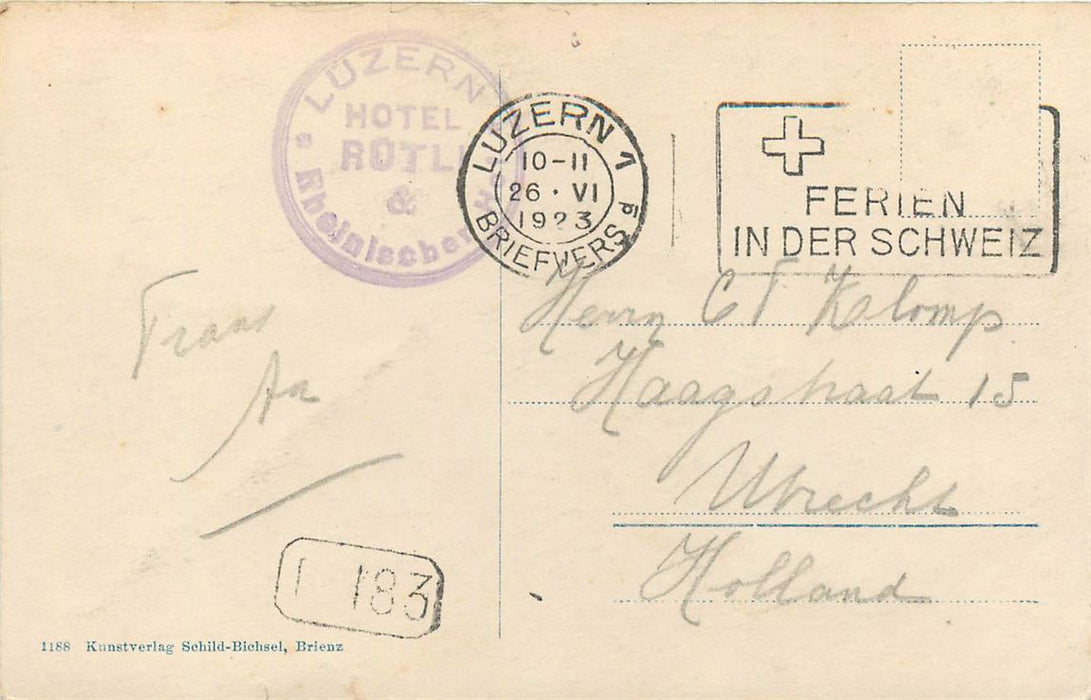 LUZERN
HOTEL
RÜTLI
&
Rheinischer
LUZERN 1
10-11
26 · VI
1923
BRIEFVERS
FERIEN
IN DER SCHWEIZ
Herrn C F Klomp
Haagstraat 15
Utrecht
Holland
Frans
An
1 183
1188 Kunstverlag Schild-Bichsel, Brienz